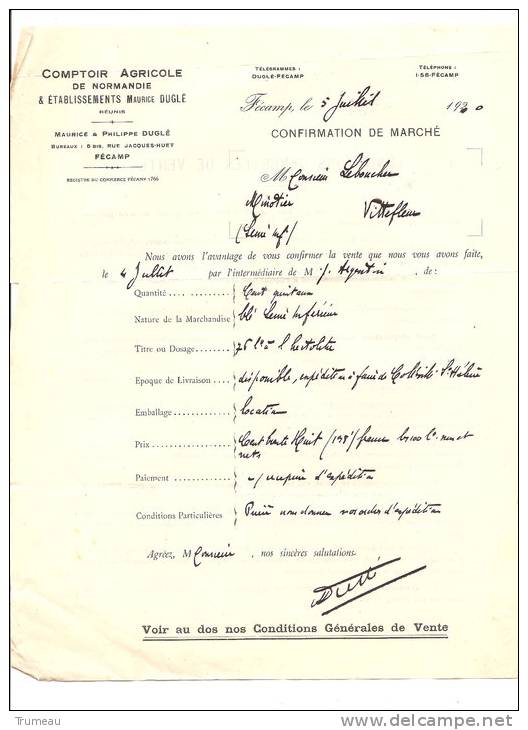 COMPTOIR AGRICOLE
DE NORMANDIE
& ÉTABLISSEMENTS MAURICE DUGLÉ
RÉUNIS
MAURICE & PHILIPPE DUGLÉ
BUREAUX : 5 BIS, RUE JACQUES-HUET
FÉCAMP
REGISTRE DU COMMERCE FÉCAMP 1766
TÉLÉGRAMMES :
DUGLÉ-FÉCAMP
TÉLÉPHONE :
1-58-FÉCAMP
Fécamp, le 5 Juillet 1930
CONFIRMATION DE MARCHÉ
Monsieur Leboucher
Minotier Vittefleur
(Seine Inf)
Nous avons l'avantage de vous confirmer la vente que nous vous avons faite,
le 4 Juillet par l'intermédiaire de M de:
Quantité Cent quintaux
Nature de la Marchandise blé Seine Inférieure
Titre ou Dosage 75 à l'hectolitre
Epoque de Livraison disponible, expédition
Emballage location
Prix Cent trente Huit (138) francs
nets
Paiement d'expédition
Conditions Particulières nous donner vos ordres d'expédition
Agréez, Monsieur, nos sincères salutations.
Voir au dos nos Conditions Générales de Vente
Trumeau
delcampe.net